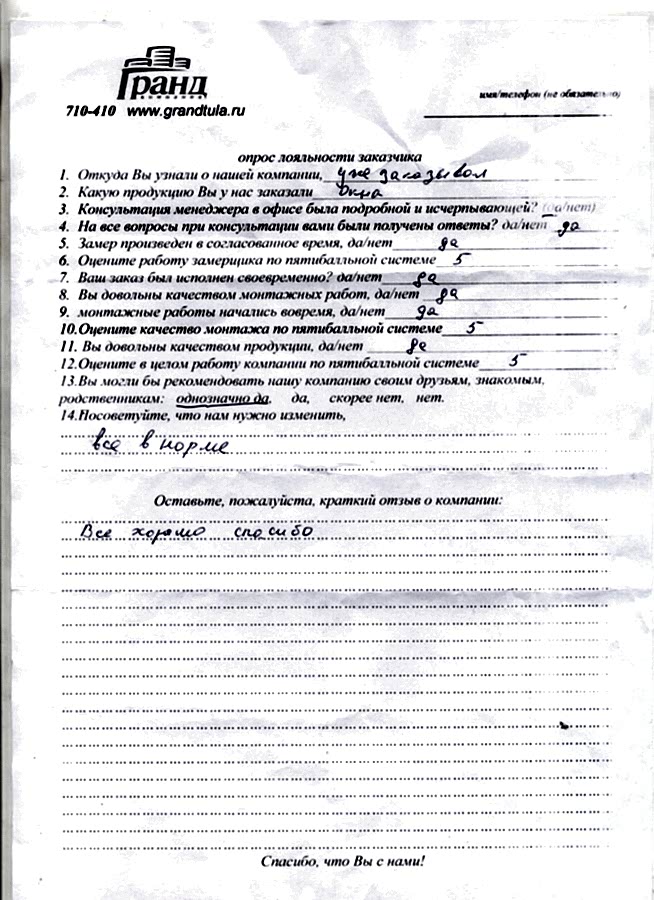 Гранд
КОМПАНИЯ
710-410 www.grandtula.ru
имя/телефон (не обязательно)
опрос лояльности заказчика
1. Откуда Вы узнали о нашей компании, уже заказывал
2. Какую продукцию Вы у нас заказали окна
3. Консультация менеджера в офисе была подробной и исчерпывающей? (да/нет)
4. На все вопросы при консультации вами были получены ответы? да/нет да
5. Замер произведен в согласованное время, да/нет да
6. Оцените работу замерщика по пятибалльной системе 5
7. Ваш заказ был исполнен своевременно? да/нет да
8. Вы довольны качеством монтажных работ, да/нет да
9. монтажные работы начались вовремя, да/нет да
10.Оцените качество монтажа по пятибалльной системе 5
11. Вы довольны качеством продукции, да/нет да
12.Оцените в целом работу компании по пятибалльной системе 5
13.Вы могли бы рекомендовать нашу компанию своим друзьям, знакомым,
родственникам: однозначно да, да, скорее нет, нет.
14.Посоветуйте, что нам нужно изменить,
все в норме
Оставьте, пожалуйста, краткий отзыв о компании:
Все хорошо спасибо
Спасибо, что Вы с нами!